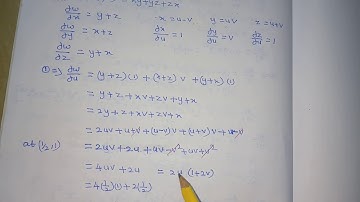 xy+yz+xz
∂w/∂x = y+z x = u-v y = uv z = u+v
∂w/∂y = x+z ∂x/∂u = 1 ∂y/∂u = v ∂z/∂u = 1
∂w/∂z = y+x
① ⇒ ∂w/∂u = (y+z)(1) + (x+z)v + (y+x)(1)
= y+z + xv+zv+y+x
= 2y+z+xv+zv+x
= 2uv+u+v+(u-v)v+(u+v)v+u-v
at (1/2,1) = 2uv+2u+uv-v²+uv+v²
= 4uv+2u = 2u(1+2v)
= 4(1/2)(1)+2(1/2)